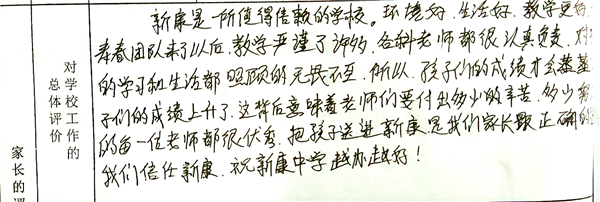 对学校工作的
总体评价
家长的
新康是一所值得信赖的学校。环境好、生活好、教学更
青春团队来了以后,教学严谨了许多,各科老师都很认真负责,对
的学习和生活都照顾的无畏不至,所以,孩子们的成绩才会蒸蒸
子们的成绩上升了,这背后意味着老师们要付出多少的辛苦,多少
的每一位老师都很优秀,把孩子送进新康是我们家长最正确的
我们信任新康,祝新康中学越办越好!